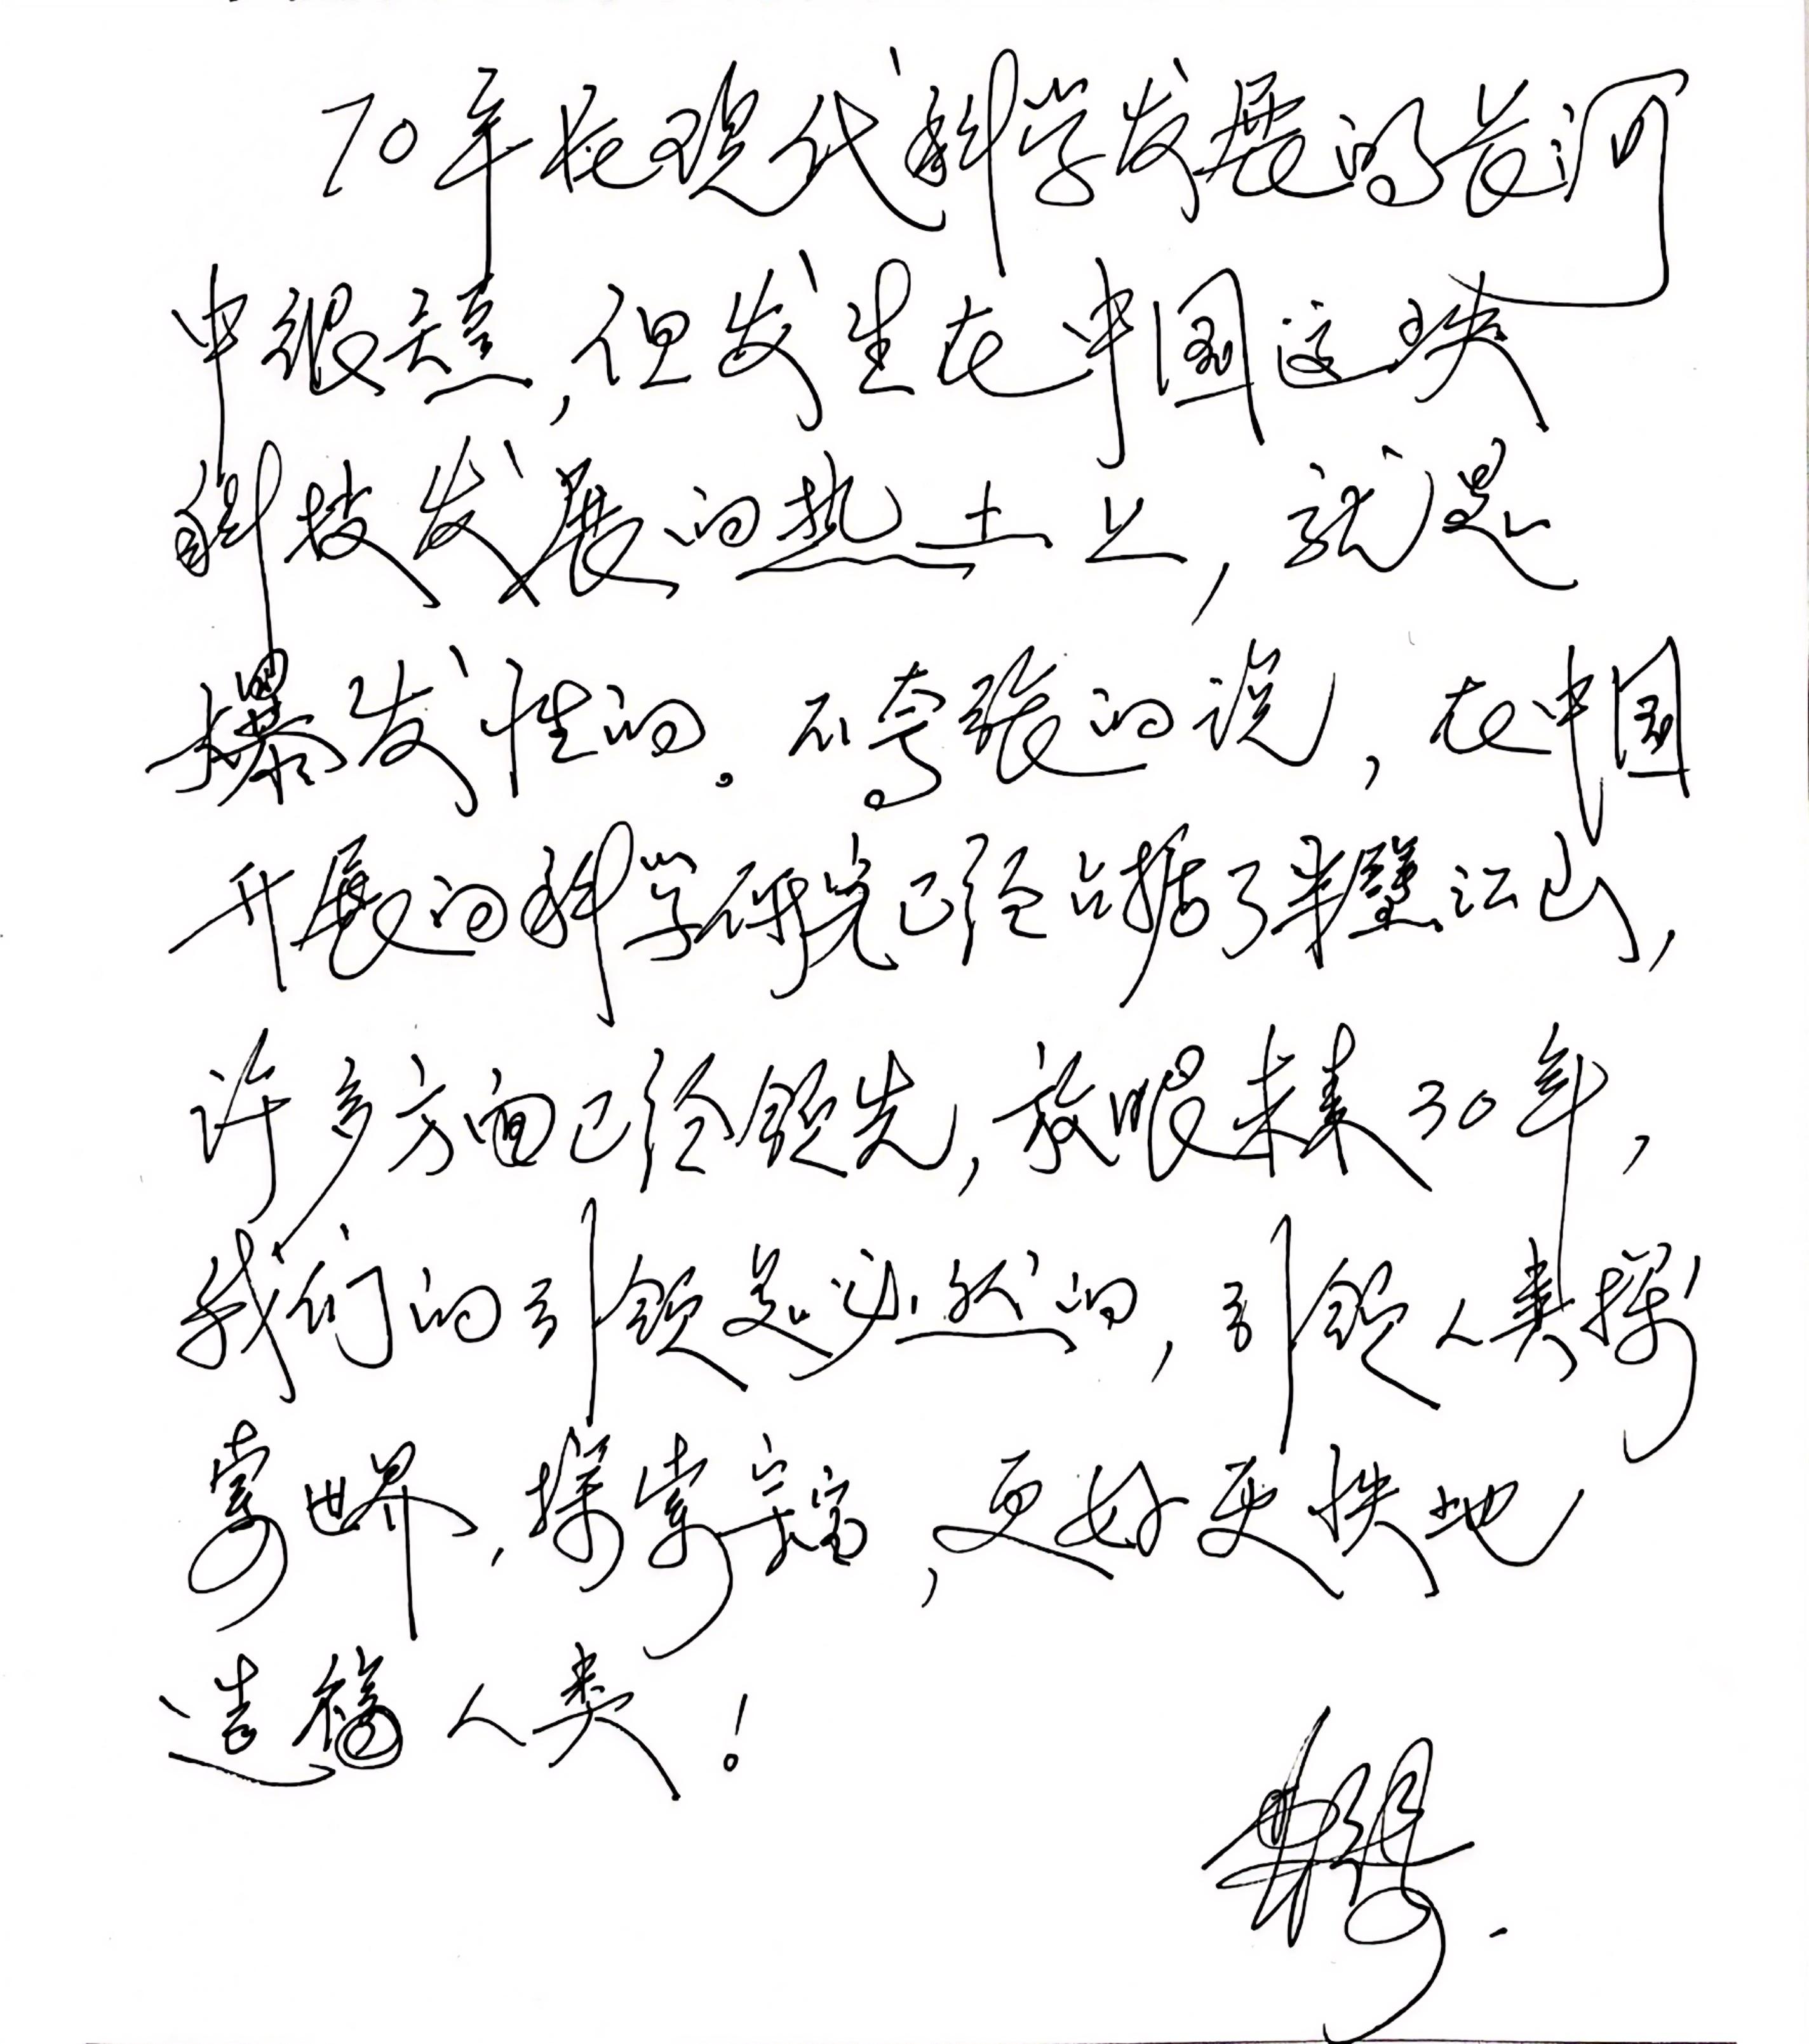 70年在现代科学发展的长河
中很短，但发生在中国这块
科技发展的热土上，就是
爆发性的。不夸张的说，在中国
开展的科学研究已经占据了半壁江山，
许多方面已经领先，放眼未来30年，
我们的引领是必然的，引领人类探
索世界，探索宇宙，更好更快地
造福人类！